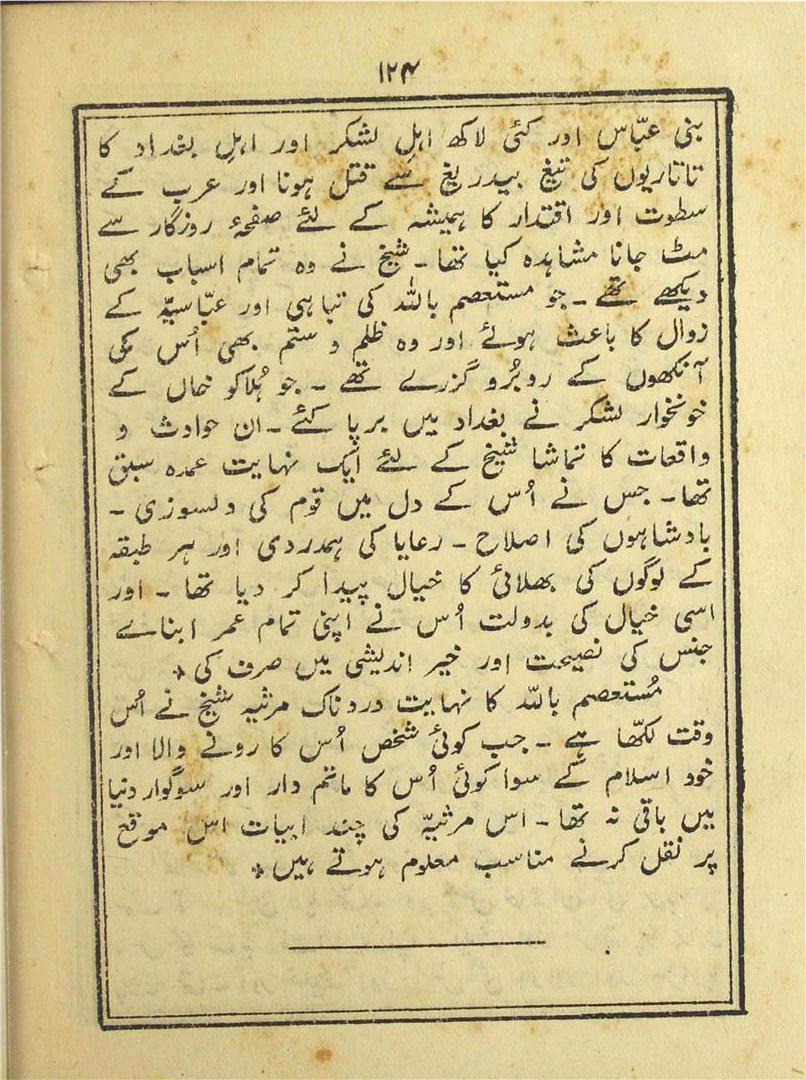 ۱۲۴
بنی عبّاس اور کئی لاکھ اہلِ لشکر اور اہلِ بغداد کا
تاتاریوں کی تیغ بیدریغ سے قتل ہونا اور عرب کے
سطوت اور اقتدار کا ہمیشہ کے لئے صفحۂ روزگار سے
مٹ جانا مشاہدہ کیا تھا۔ شیخ نے وہ تمام اسباب بھی
دیکھے تھے۔ جو مستعصم باللہ کی تباہی اور عبّاسیّہ کے
زوال کا باعث ہوئے اور وہ ظلم و ستم بھی اُس کی
آنکھوں کے روبُرو گزرے تھے ۔ جو ہُلاکو خاں کے
خونخوار لشکر نے بغداد میں برپا کئے۔ ان حوادث و
واقعات کا تماشا شیخ کے لئے ایک نہایت عمدہ سبق
تھا۔ جس نے اُس کے دل میں قوم کی دلسوزی ۔
بادشاہوں کی اصلاح ۔ رعایا کی ہمدردی اور ہر طبقہ
کے لوگوں کی بھلائی کا خیال پیدا کر دیا تھا ۔ اور
اسی خیال کی بدولت اُس نے اپنی تمام عمر ابناے
جنس کی نصیحت اور خیر اندیشی میں صرف کی *
مُستعصم باللہ کا نہایت دردناک مرثیہ شیخ نے اُس
وقت لکھّا ہے ۔ جب کوئی شخص اُس کا رونے والا اور
خود اسلام کے سوا کوئی اُس کا ماتم دار اور سوگوار دنیا
میں باقی نہ تھا۔ اس مرثیّہ کی چند ابیات اس موقع
پر نقل کرنے مناسب معلوم ہوتے ہیں *